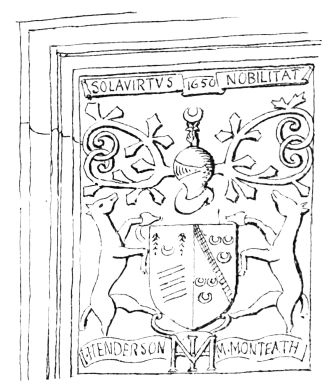 SOLAVIRTVS 1650 NOBILITAT
I·HENDERSON M·MONTEATH